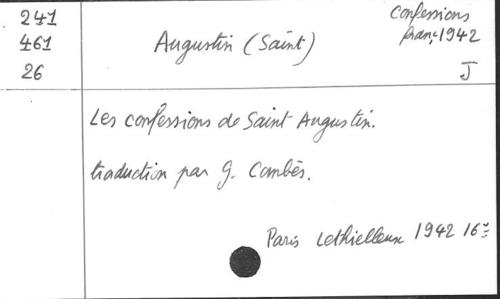 241
461
26
Augustin (Saint)
Confessions
franç 1942
J
Les confessions de Saint Augustin.
traduction par G. Combès.
Paris Lethielleux 1942 16°